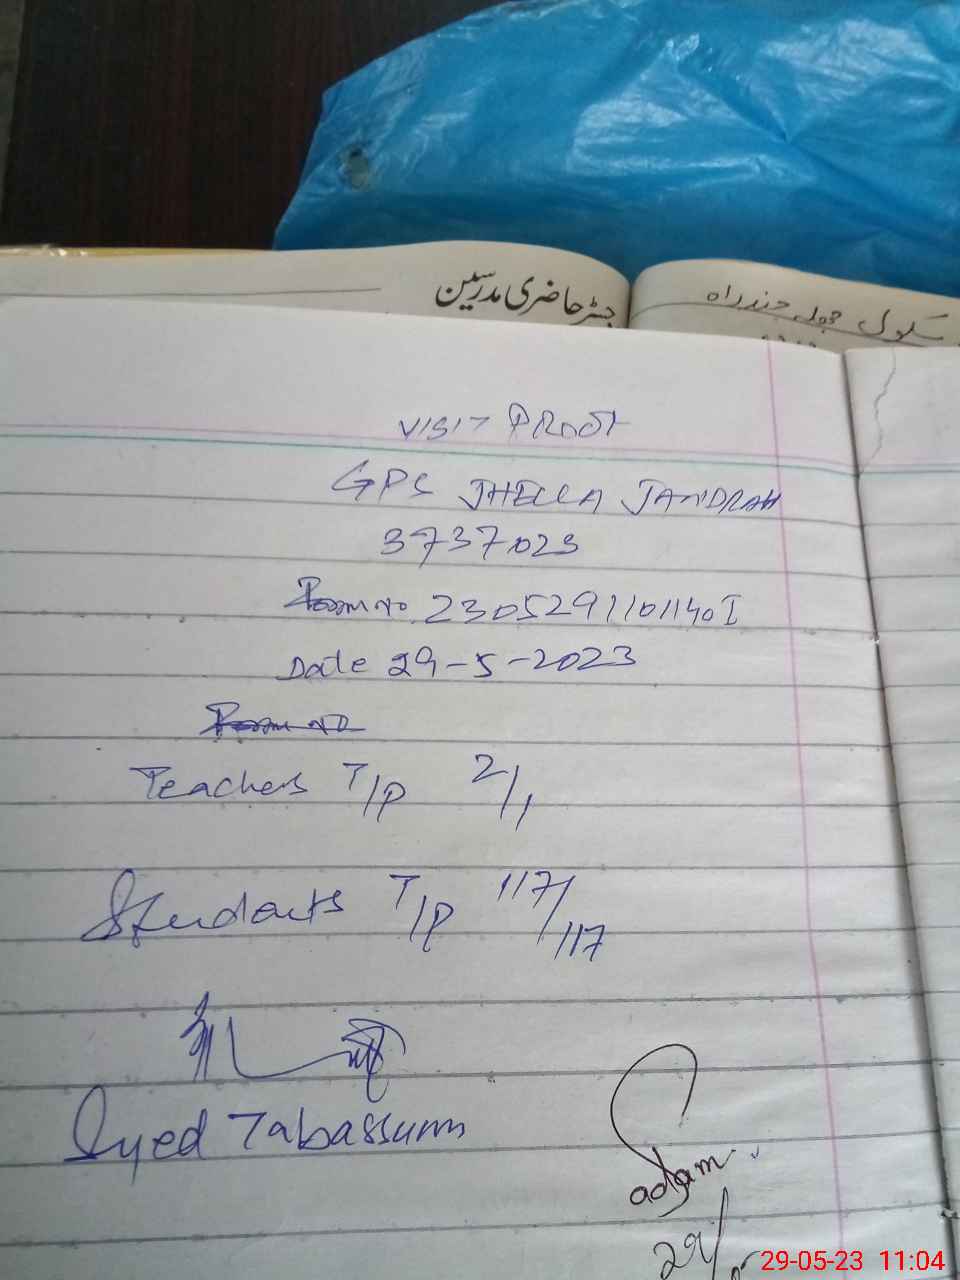 جسٹر حاضری مدرسین
سکول جھلہ جندراہ
VISIT PROOF
GPS JHELLA JANDRAH
3737023
Form No 230529110114OI
Date 29-5-2023
Form NO
Teachers T/P 2/1
Students T/P 117/117
Syed Tabassum
29/
29-05-23 11:04